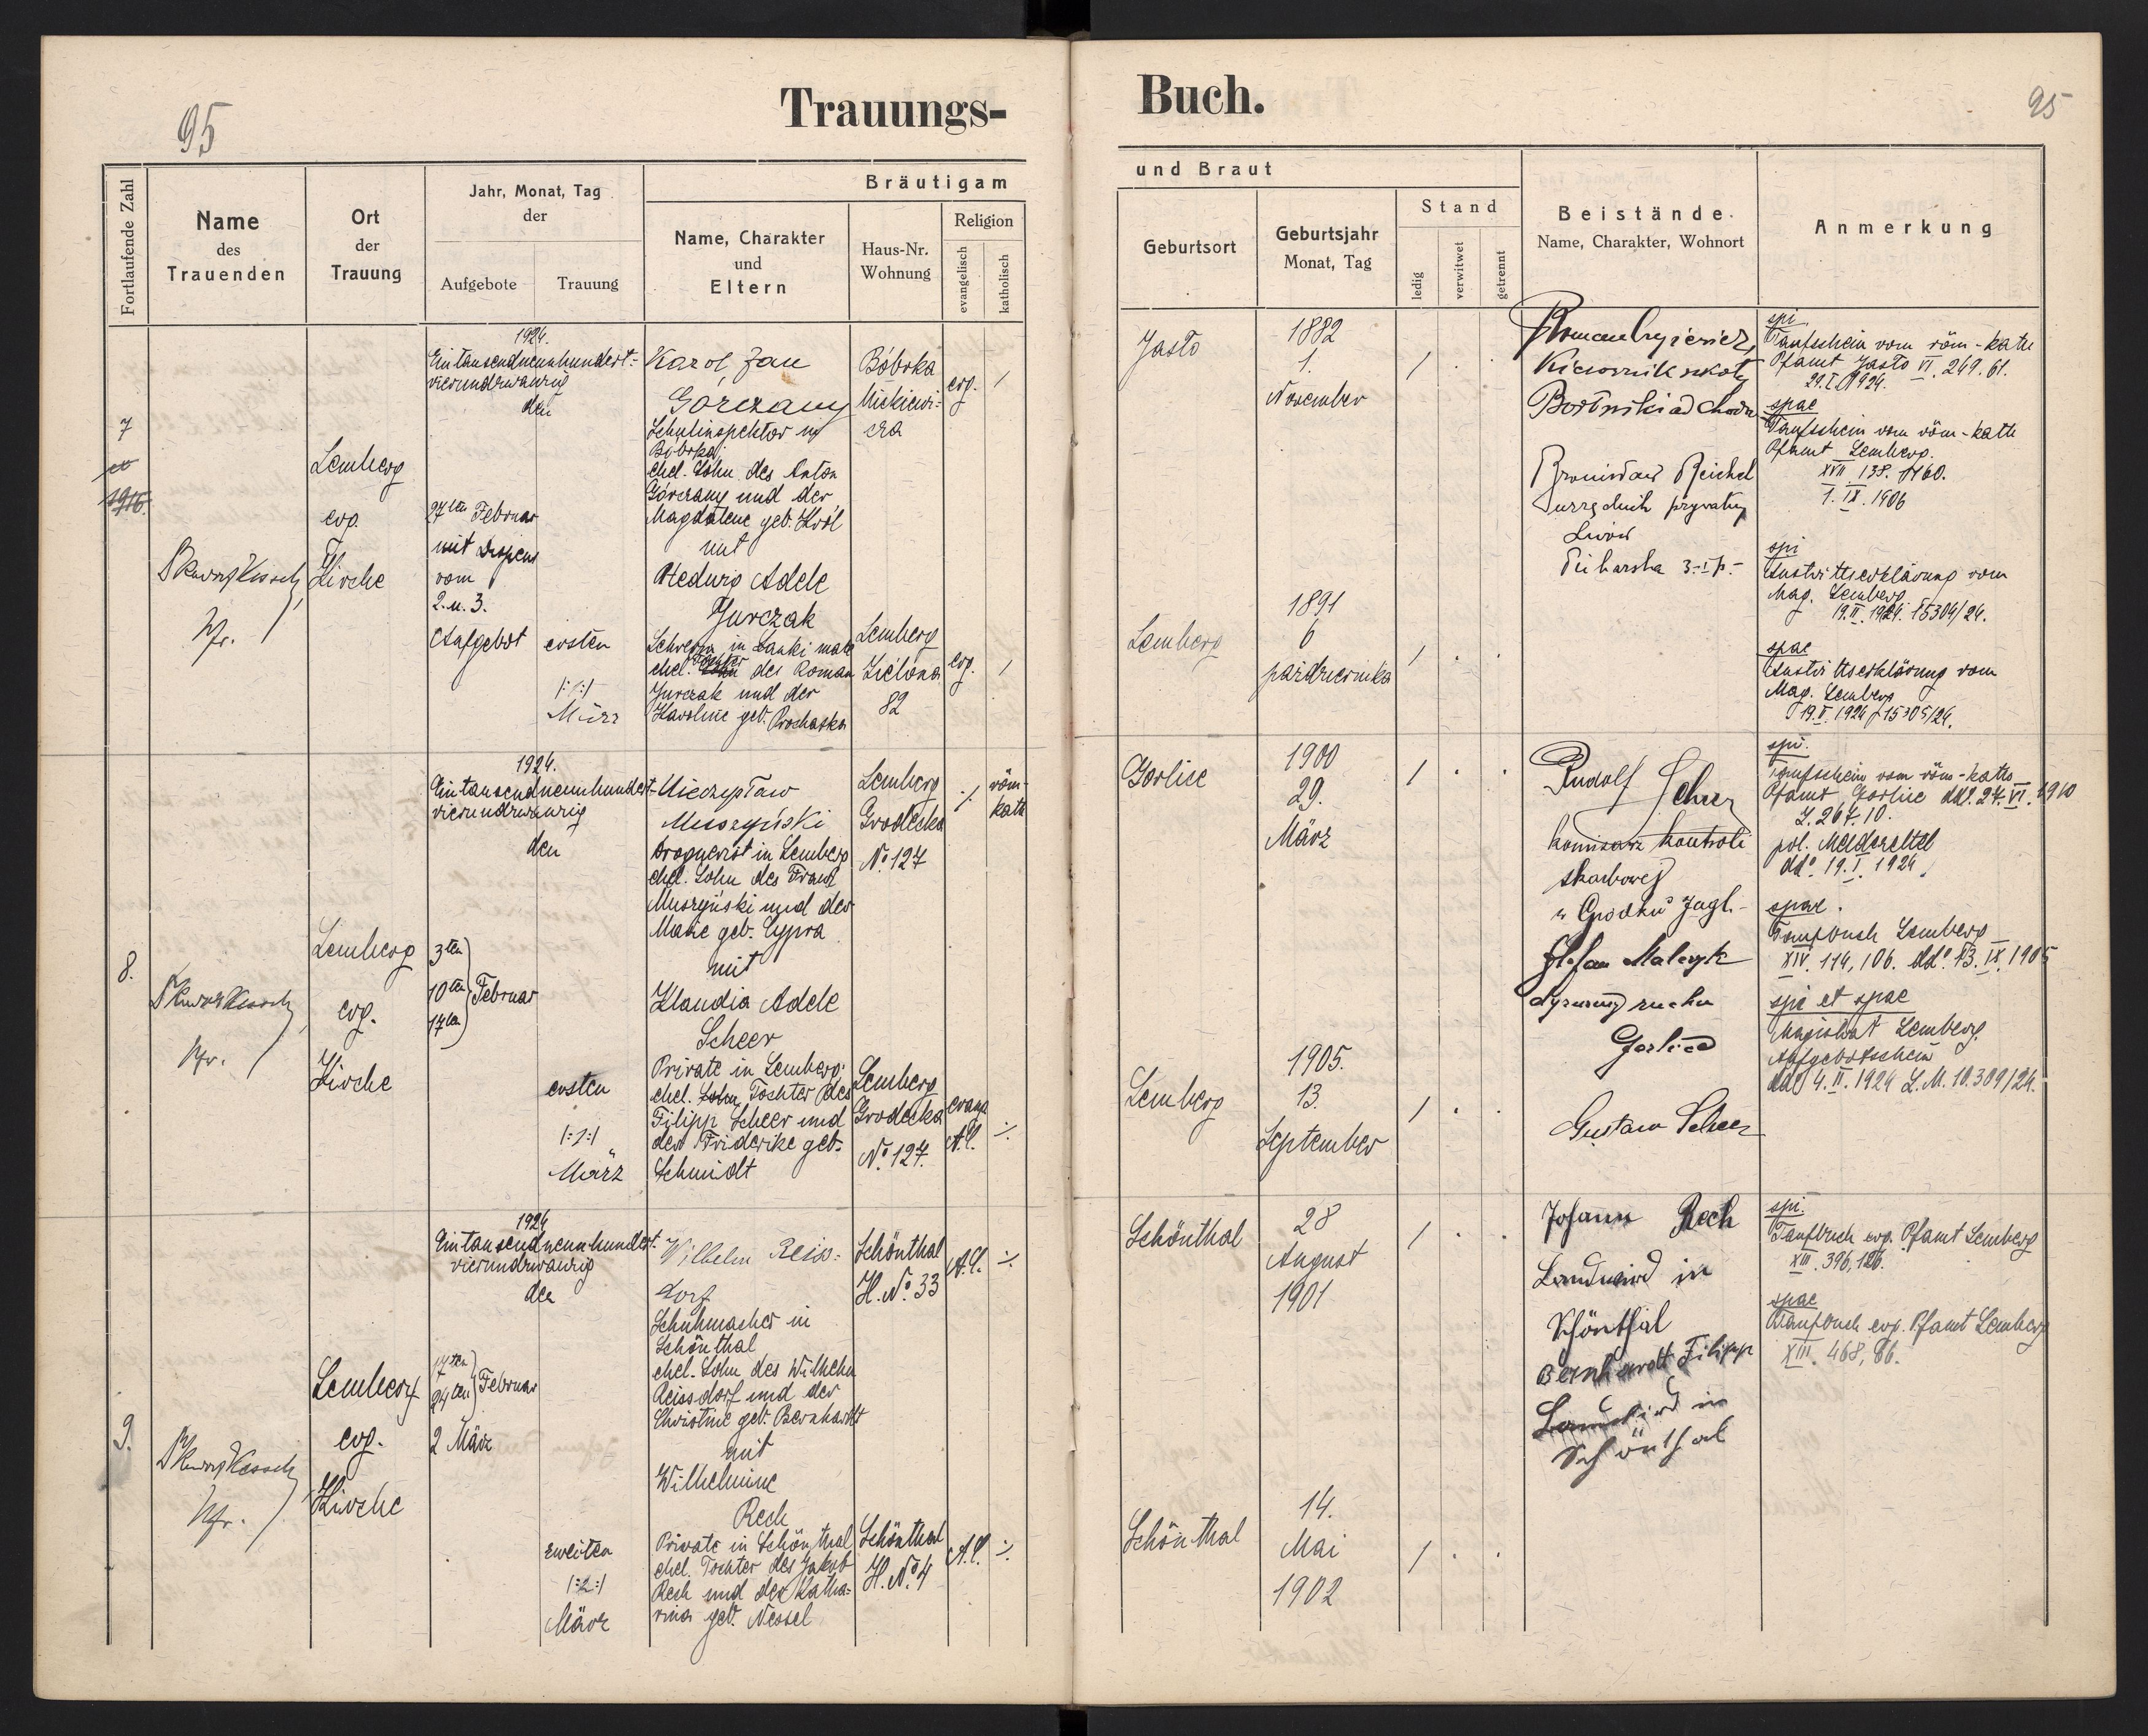 95
Trauungs-
Fortlaufende Zahl
Name
des
Trauenden
Ort
der
Trauung
Jahr, Monat, Tag
der
Aufgebote
Trauung
Bräutigam
Name, Charakter
und
Eltern
Haus-Nr.
Wohnung
Religion
evangelisch
katholisch
7
Pfr.
Lemberg
evg.
Kirche
1924.
Eintausendneunhundert-
vierundzwanzig
den
27ten Februar
mit Dispens
vom
2. u. 3.
Aufgebot
ersten
/:1:/
März
Karol Jan
Górczany
Schulinspektor in
Bóbrka;
ehel. Sohn des Anton
Górczany und der
Magdalene geb. Król
mit
Hedwig Adele
Jurczak
ehel. Tochter des Roman
Jurczak und der
Karoline geb. Prochaska
Bóbrka
Mickiewi-
cza
evg.
/
Lemberg
Zielona
82
evg.
/
8.
Pfr.
Lemberg
evg.
Kirche
1924.
Eintausendneunhundert-
vierundzwanzig
den
3ten
10ten
17ten
Februar
ersten
/:1:/
März
Mieczysław
Muszyński
Droguerist in Lemberg
ehel. Sohn des Franz
Muszyński und der
Marie geb. Cypra
mit
Klaudia Adele
Scheer
Private in Lemberg;
ehel. Sohn Tochter des
Filipp Scheer und
der Friderike geb.
Schmidt
Lemberg
Grodecka
No 127
röm-
kath
Lemberg
Grodecka
No. 127.
evang.
A.C.
9.
Pfr.
Lemberg
evg.
Kirche
1924
Eintausendneunhundert-
vierundzwanzig
den
17ten
24ten
Februar
2 März
zweiten
/:2:/
März
Wilhelm Reiss-
dorf
Schuhmacher in
Schönthal
ehel. Sohn des Wilhelm
Reissdorf und der
Christine geb. Bernhardt
mit
Wilhelmine
Rech
Private in Schönthal
ehel. Tochter des Jakob
Rech und der Katha-
rina geb. Nessel
Schönthal
H. No. 33
A.C.
Schönthal
H. No 4
A.C.
Buch.
95
und Braut
Geburtsort
Geburtsjahr
Monat, Tag
Stand
ledig
verwitwet
getrennt
Beistände.
Name, Charakter, Wohnort
Anmerkung
Jasło
1882
1.
November
/
Bronisław Reichel
urzędnik prywatny
Lwów
spi
Taufschein vom röm-kath
Pfamt Jasło VI. 249. 61.
29. I. 1924.
spae
Taufschein vom röm-kath
Pfamt Lemberg.
XVII. 138. 1160.
1. IX. 1906
spi
Austrittserklärung vom
Mag. Lemberg
19. II. 1924. 15304/24.
Lemberg
1891
6
października
/
spae
Austrittserklärung vom
Mag. Lemberg
19. II. 1924 15305/24.
Gorlice
1900
29.
März
/
Rudolf Scheer
komisarz kontroli
skarbowej
w Gródku Jagl.
Stefan
dyżurny ruchu
Gorlice
Gustaw Scheer
spi.
Taufschein vom röm-kath
Pfamt Gorlice ddo. 27. VI. 1910
Z. 267. 10.
pol. Meldezettel
ddo. 19. I. 1924.
spae.
Taufbuch Lemberg
XIV. 114, 106. ddo. 13. IX. 1905
spi et spae
Magistrat Lemberg.
Aufgebotsschein
ddo 4. II. 1924 L. M. 10.309/24.
Lemberg
1905.
13.
September
/
Schönthal
28
August
1901
/
Johann Rech
Landwird in
Schönthal
Bernhardt Filipp
Landwird in
Schönthal
spi.
Taufbuch evg. Pfamt Lemberg
XIII. 396, 126.
spae
Taufbuch evg. Pfamt Lemberg
XIII. 468, 86.
Schönthal
14.
Mai
1902
/